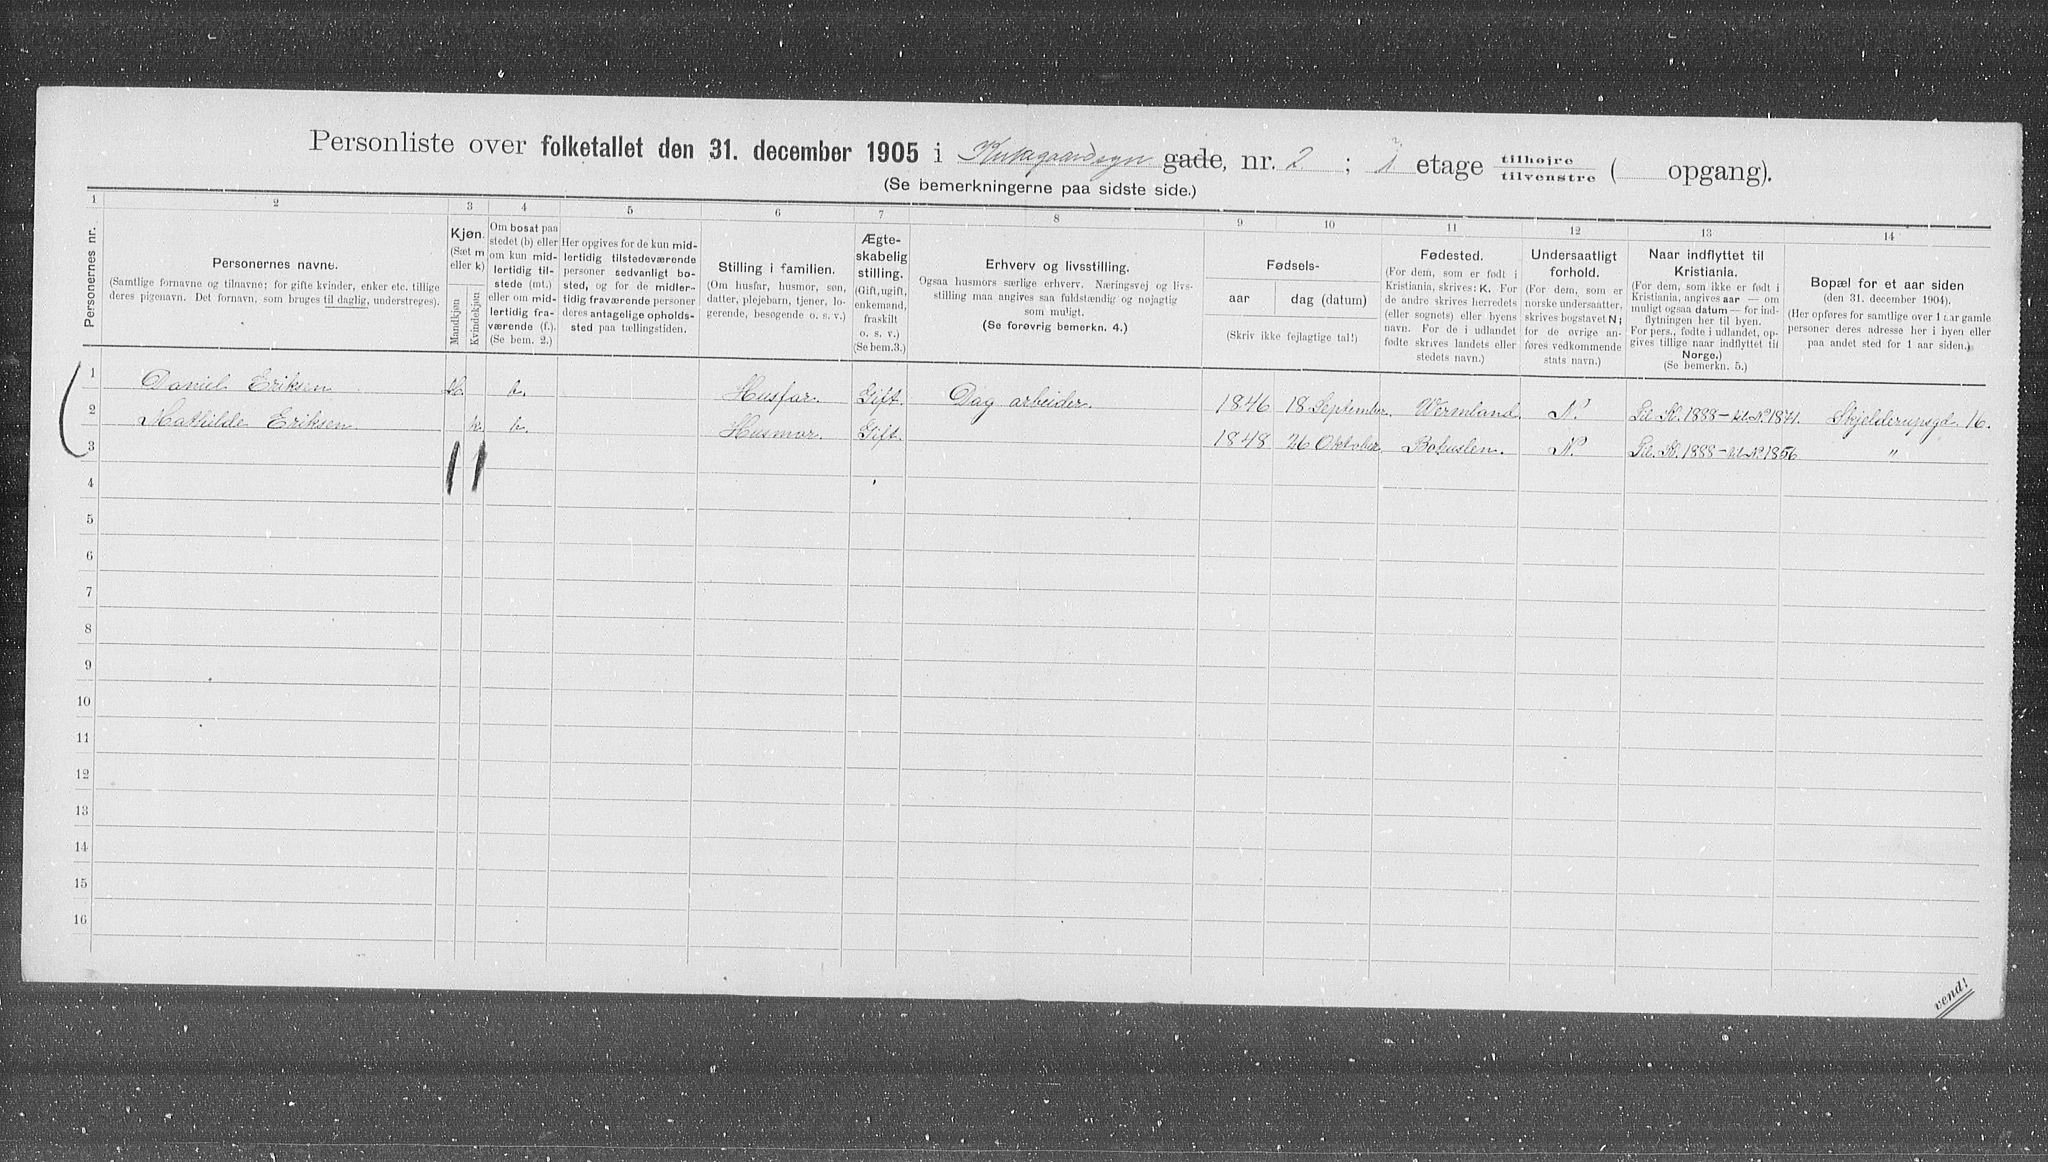 Personliste over folketallet den 31. december 1905 i gade, nr. 2 ; etage tilhøjre tilvenstre ( opgang).
(Se bemerkningerne paa sidste side.)
1 2 3 4 5 6 7 8 9 10 11 12 13 14
Personernes nr.
Personernes navne.
(Samtlige fornavne og tilnavne; for gifte kvinder, enker etc. tillige
deres pigenavn. Det fornavn, som bruges til daglig, understreges).
Kjøn.
(Sæt m
eller k)
Mandkjøn
Kvindekjøn
Om bosat paa
stedet (b) eller
om kun mid-
lertidig til-
stede (mt.)
eller om mid-
lertidig fra-
værende (f.).
(Se bem. 2.)
Her opgives for de kun mid-
lertidig tilstedeværende
personer sedvanligt bo-
sted, og for de midler-
tidig fraværende personer
deres antagelige opholds-
sted paa tællingstiden.
Stilling i familien.
(Om husfar, husmor, søn,
datter, plejebarn, tjener, lo-
gerende, besøgende o. s. v.)
Ægte-
skabelig
stilling.
(Gift, ugift,
enkemand,
fraskilt
o. s. v.)
(Se bem.3.)
Erhverv og livsstilling.
Ogsaa husmors særlige erhverv. Næringsvej og livs-
stilling maa angives saa fuldstændig og nøjagtig
som muligt.
(Se forøvrig bemerkn. 4.)
Fødsels-
aar dag (datum)
(Skriv ikke fejlagtige tal!)
Fødested.
(For dem, som er født i
Kristiania, skrives: K. For
de andre skrives herredets
(eller sognets) eller byens
navn. For de i udlandet
fødte skrives landets eller
stedets navn.)
Undersaatligt
forhold.
(For dem, som er
norske undersaatter,
skrives bogstavet N;
for de øvrige an-
føres vedkommende
stats navn.)
Naar indflyttet til
Kristiania.
(For dem, som ikke er født i
Kristiania, angives aar — om
muligt ogsaa datum — for ind-
flytningen her til byen.
For pers., fødte i udlandet, op-
gives tillige naar indflyttet til
Norge.)
(Se bemerkn. 5.)
Bopæl for et aar siden
(den 31. december 1904).
(Her opføres for samtlige over 1 aar gamle
personer deres adresse her i byen eller
paa andet sted for 1 aar siden.)
1 Daniel Eriksen M. b. Husfar. Gift. Dag arbeider. 1846 18 September. Wermland. N. Til K. 1888 - til N. 1871. Skjelderupsgd. 16.
2 Mathilde Eriksen k. b. Husmor. Gift. 1848 26 Oktober. Bohuslen. N. Til K. 1888 - til N. 1856 "
3
4
5
6
7
8
9
10
11
12
13
14
15
16
vend!